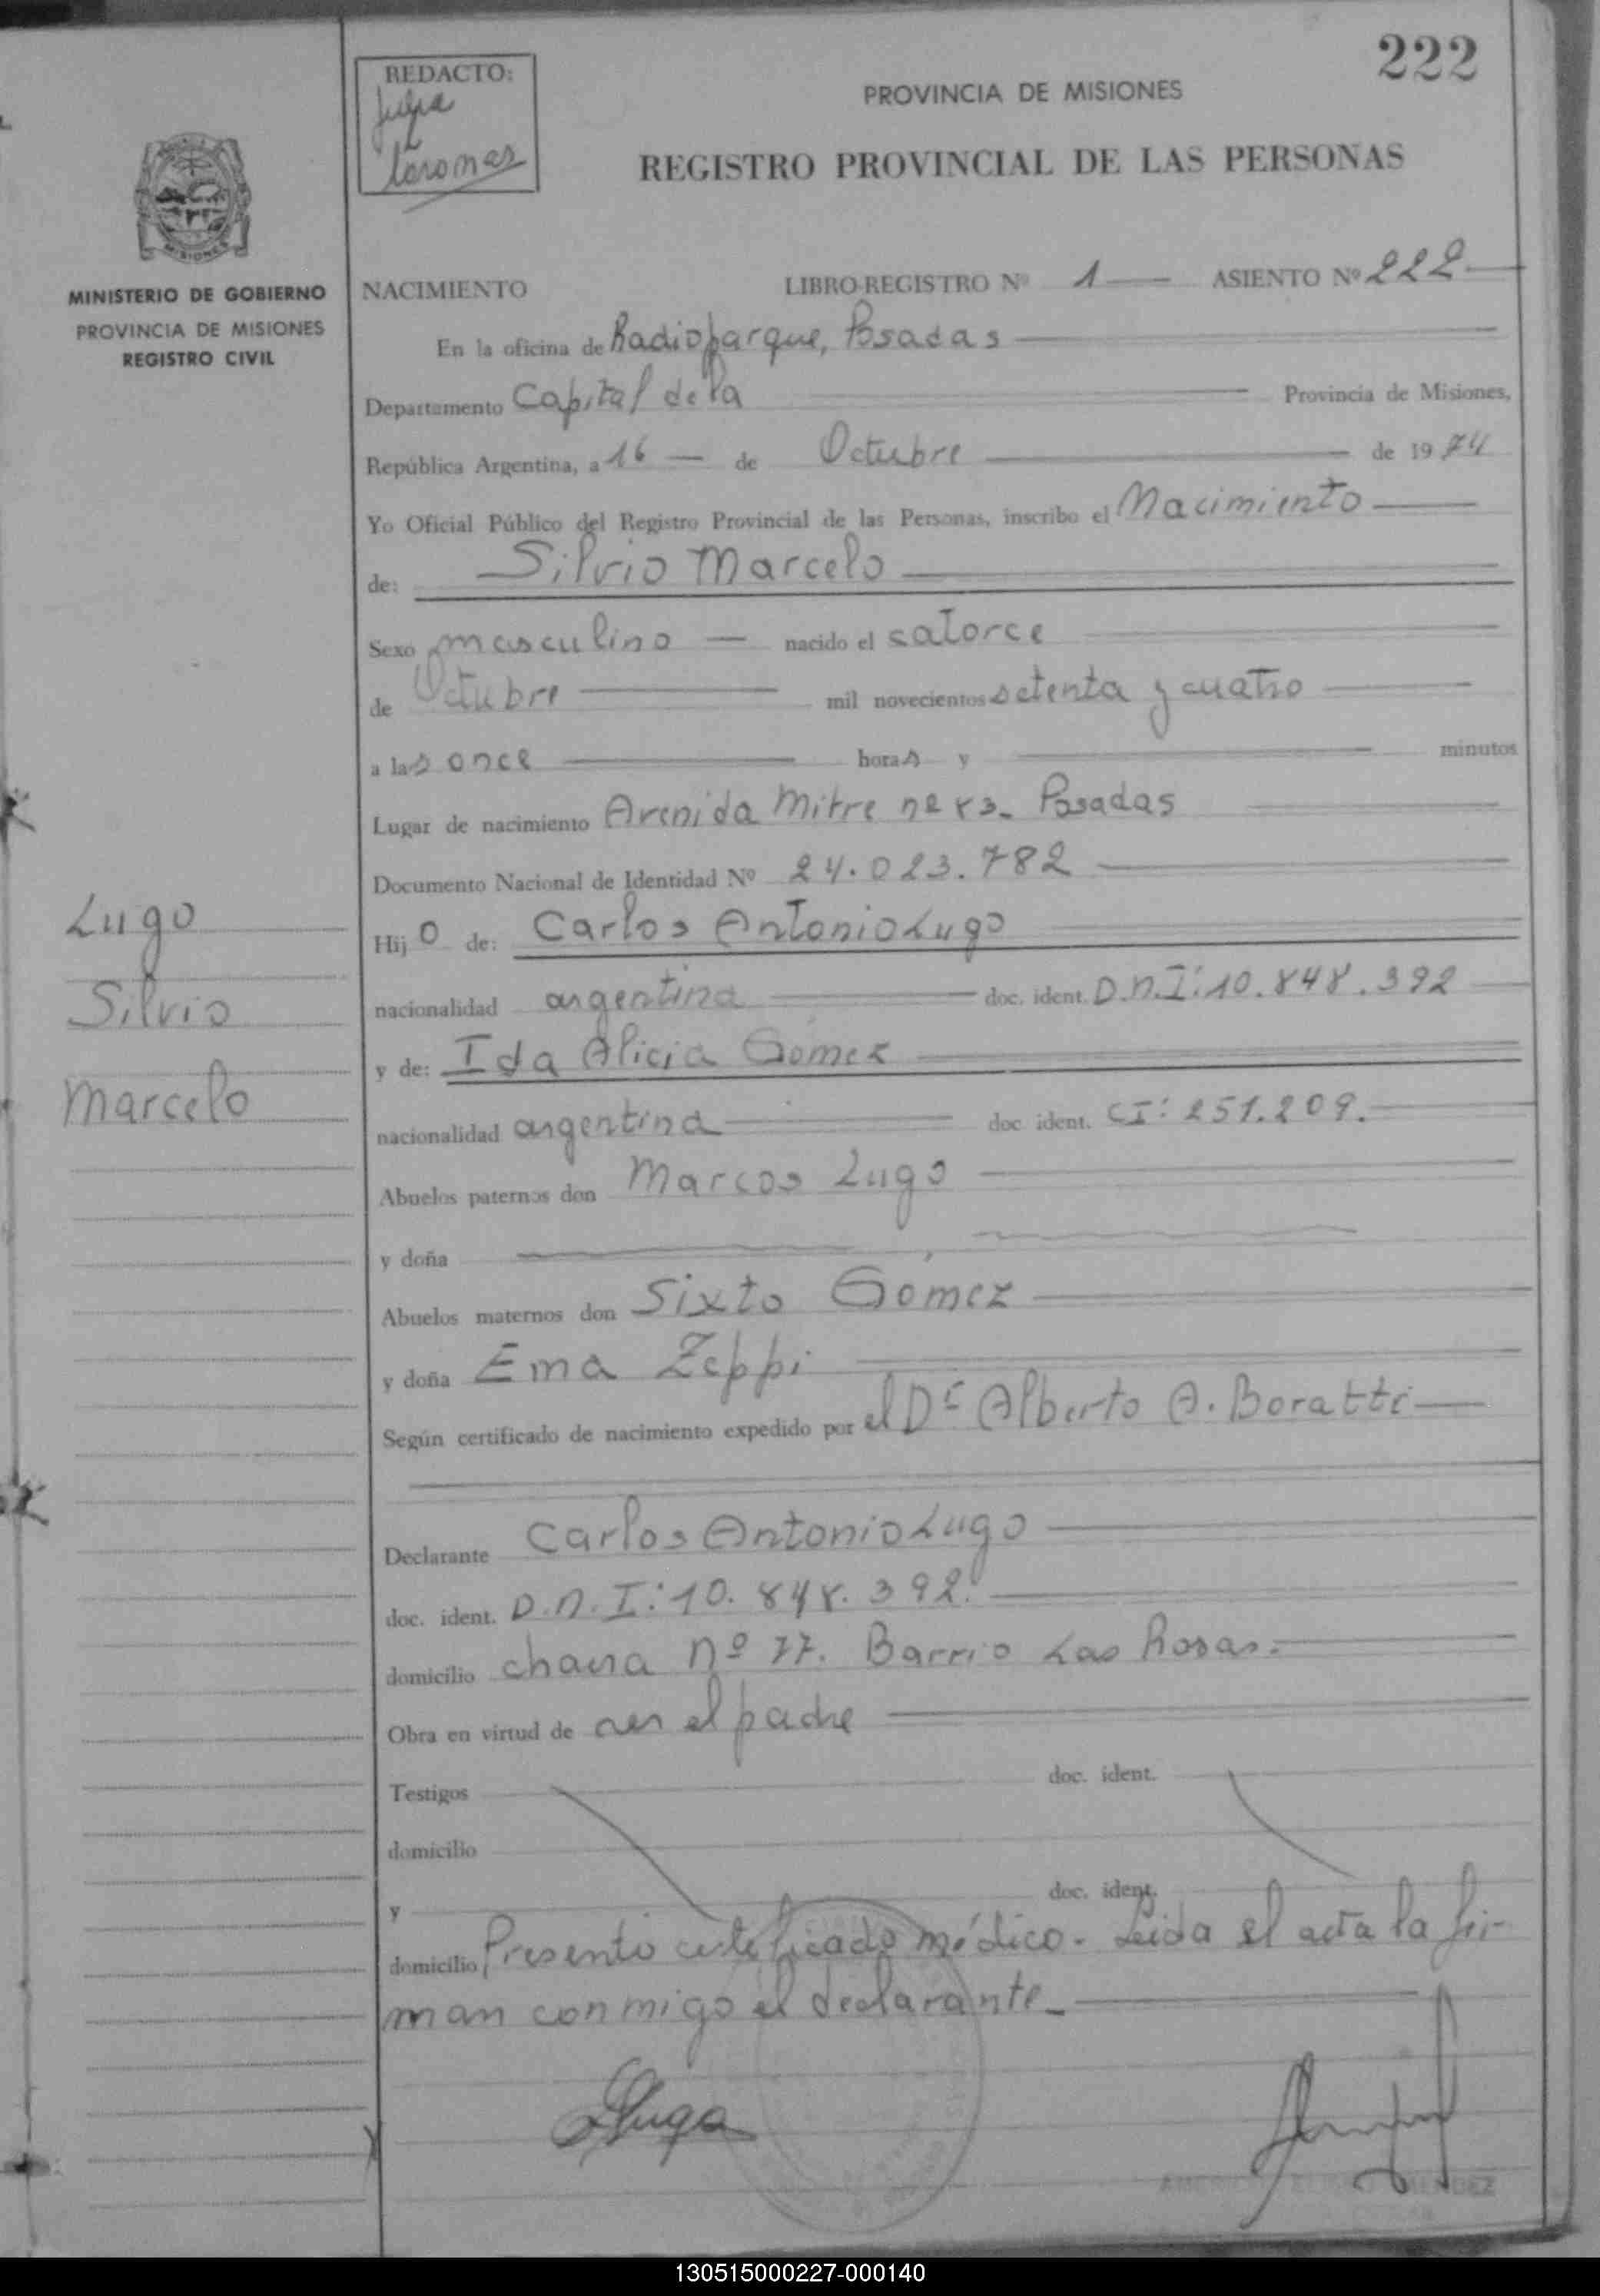 222
REDACTO:
PROVINCIA DE MISIONES
REGISTRO PROVINCIAL DE LAS PERSONAS
MISIONES
MINISTERIO DE GOBIERNO
PROVINCIA DE MISIONES
REGISTRO CIVIL
NACIMIENTO LIBRO-REGISTRO Nº 1 ASIENTO Nº 222
En la oficina de Radioparque, Posadas
Departamento Capital de la Provincia de Misiones,
República Argentina, a 16 de Octubre de 1974
Yo Oficial Público del Registro Provincial de las Personas, inscribo el Nacimiento
de: Silvio Marcelo
Sexo masculino nacido el catorce
de Octubre mil novecientos setenta y cuatro
a las once horas y minutos
Lugar de nacimiento Avenida Mitre nº Posadas
Documento Nacional de Identidad Nº 24.023.782
Hijo de: Carlos Antonio Lugo
nacionalidad argentina doc. ident. D.N.I: 10.848.392
y de: Ida Alicia Gómez
nacionalidad argentina doc. ident. CI: 251.209.
Abuelos paternos don Marcos Lugo
y doña
Abuelos maternos don Sixto Gómez
y doña Ema Zeppi
Según certificado de nacimiento expedido por el Dr Alberto A. Boratti
Declarante Carlos Antonio Lugo
doc. ident. D.N.I: 10.848.392.
domicilio chacra Nº 77. Barrio Las Rosas.
Obra en virtud de ser el padre
Testigos doc. ident.
domicilio
y doc. ident.
domicilio Presento certificado médico. Leida el acta la fir-
man conmigo el declarante
Lugo
Silvio
Marcelo
Lugo
130515000227-000140